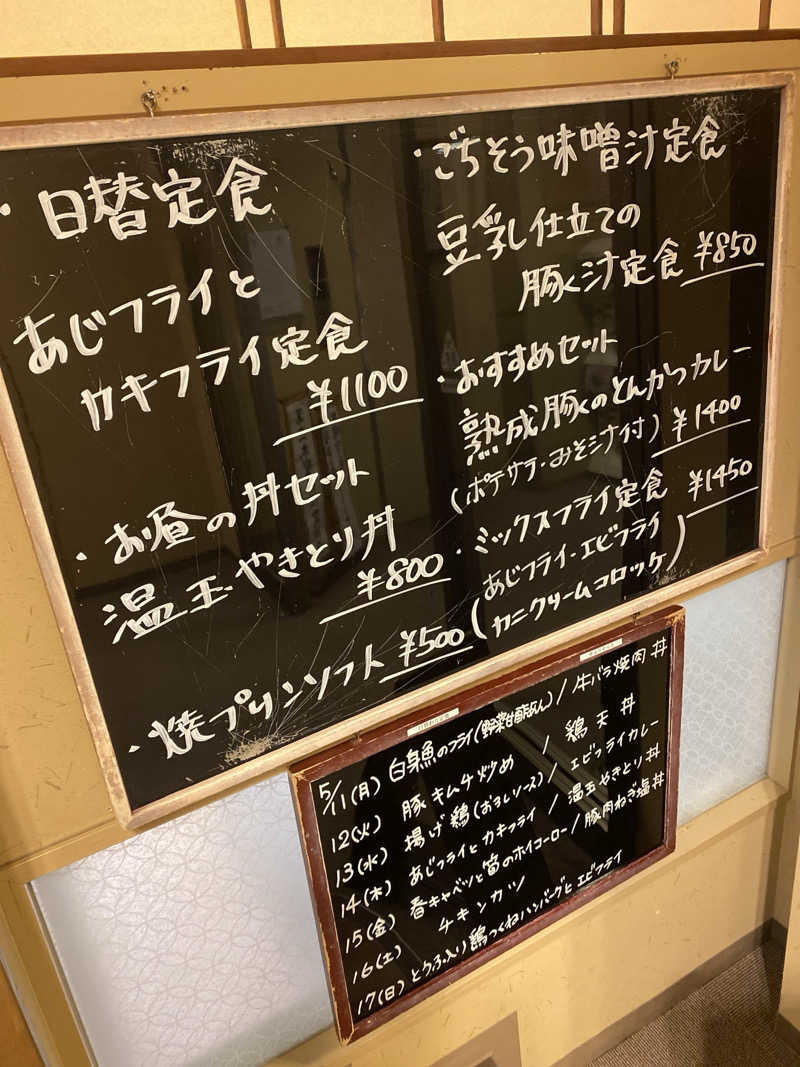 ・日替定食
あじフライと
カキフライ定食
¥1100
・お昼の丼セット
温玉やきとり丼
¥800
・焼プリンソフト ¥500
・ごちそう味噌汁定食
豆乳仕立ての
豚汁定食 ¥850
・おすすめセット
熟成豚のとんかつカレー
(ポテサラ・みそ汁付) ¥1400
・ミックスフライ定食 ¥1450
(あじフライ・エビフライ
カニクリームコロッケ)
5/11(月) 白身魚のフライ(野菜甘酢あん) / 牛バラ焼肉丼
12(火) 豚キムチ炒め / 鶏天丼
13(水) 揚げ鶏(おろしソース) / エビフライカレー
14(木) あじフライとカキフライ / 温玉やきとり丼
15(金) 春キャベツと筍のホイコーロー / 豚肉ねぎ塩丼
16(土) チキンカツ
17(日) とうふ入り鶏つくねハンバーグとエビフライ